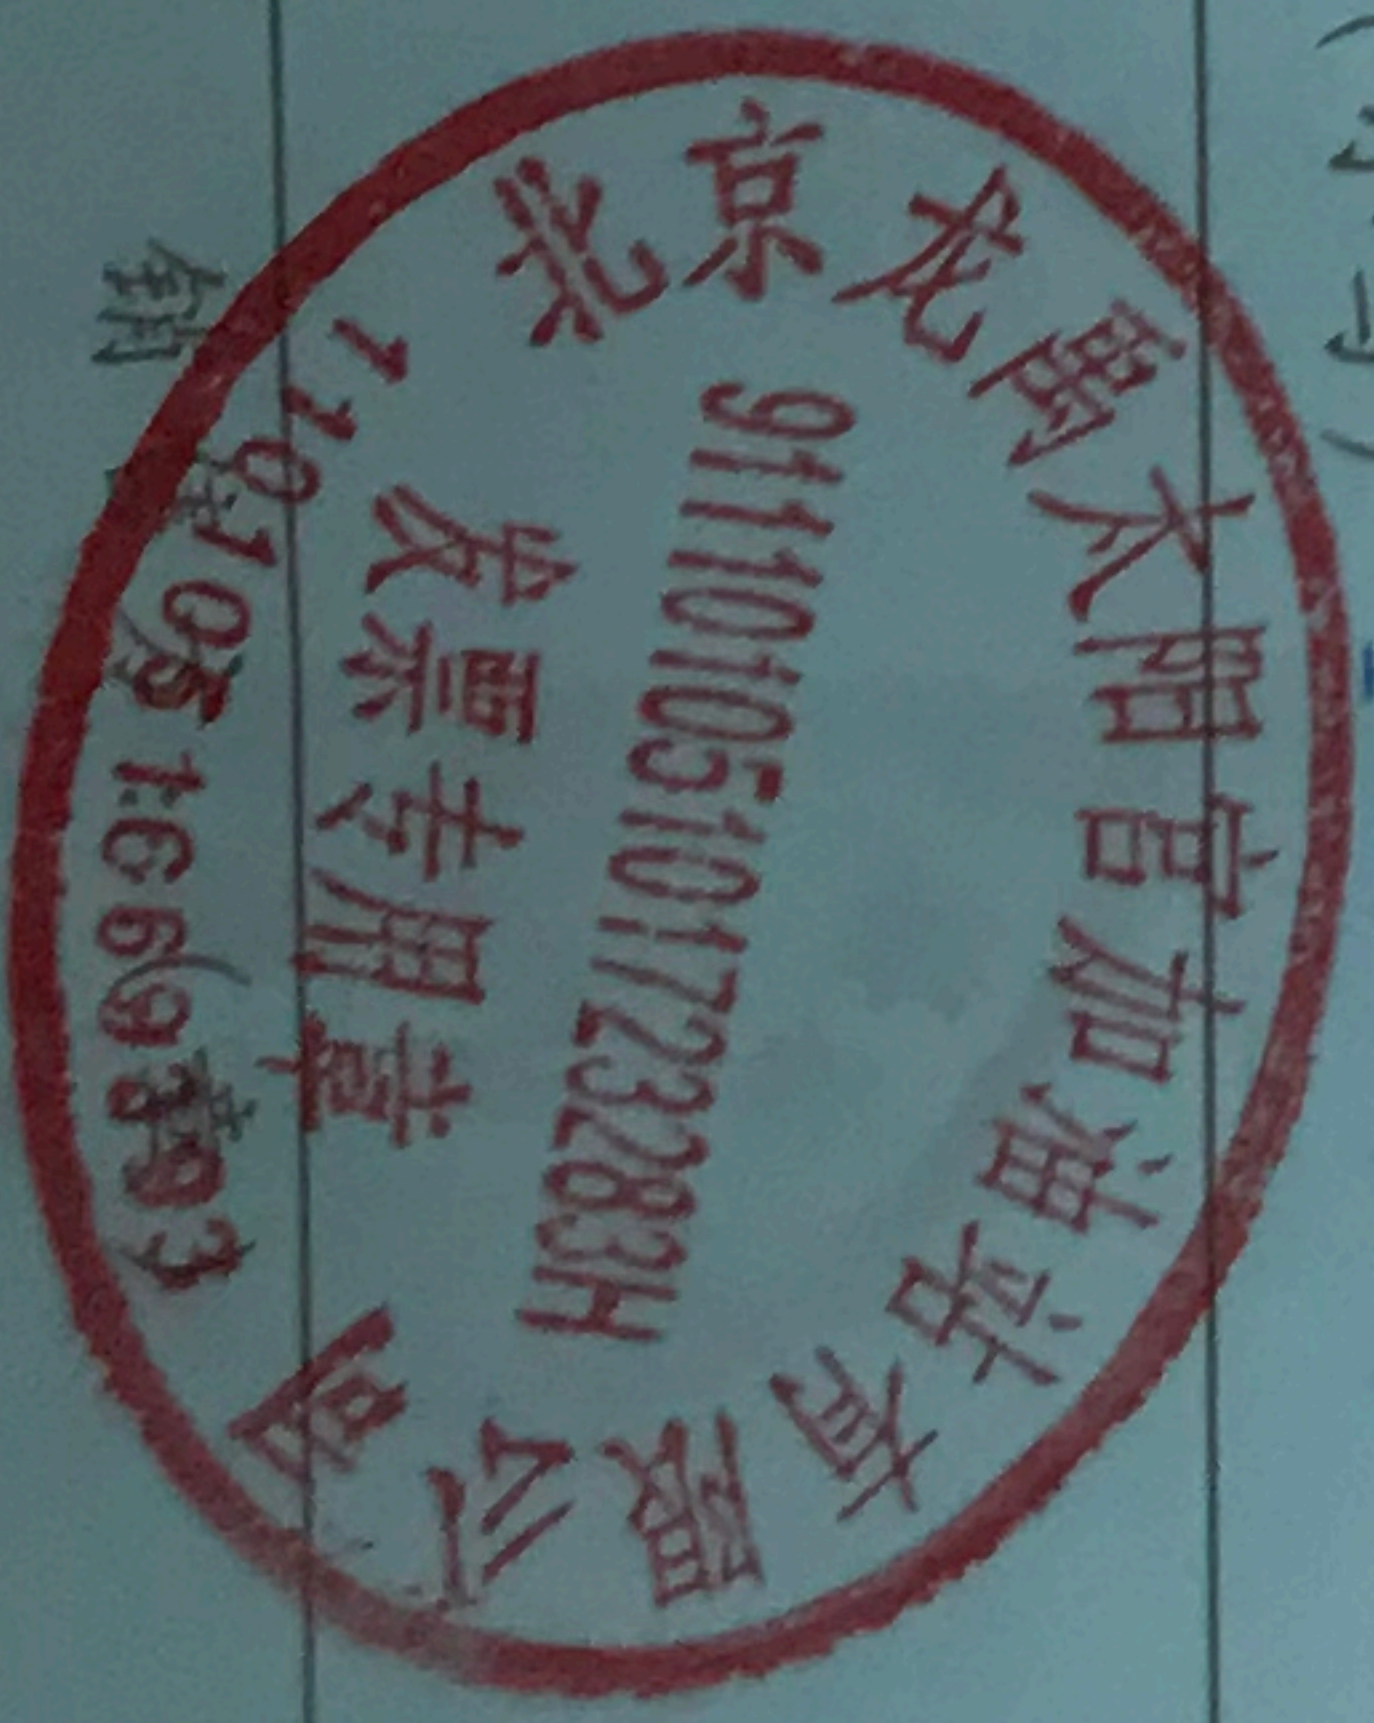 北京龙禹太阳宫加油站有限公司
91110105101723283H
发票专用章
销
章